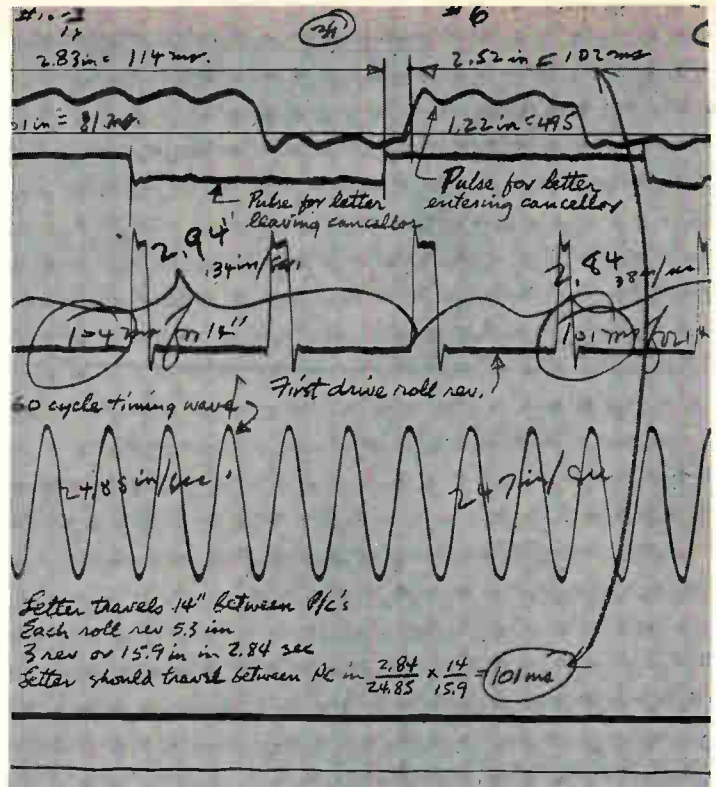 # 6
2.83 in = 114 ms.
2.52 in = 102 ms
in = 81 ms.
1.22 in = 495
Pulse for letter
leaving cancellor
Pulse for letter
entering cancellor
2.94"
2.84
104 ms for 14"
101 ms for 1
First drive roll rev.
60 cycle timing wave
24.85 in/sec
24.7 in/sec
Letter travels 14" between P/c's
Each roll rev 5.3 in
3 rev or 15.9 in in 2.84 sec
Letter should travel between PC in 2.84/24.85 x 14/15.9 = 101 ms